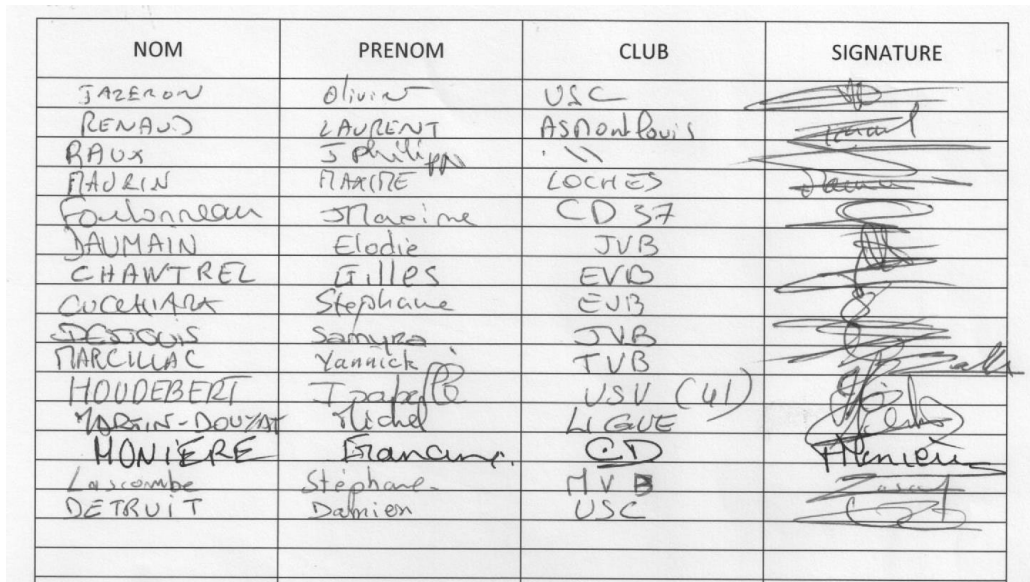 NOM PRENOM CLUB SIGNATURE
JAZERON Olivier USC
RENAUD LAURENT ASMontlouis
RAUX J Philipp . \\
MAURIN MAXIME LOCHES
Foulonneau Maxime CD 37
DAUMAIN Elodie JVB
CHANTREL Gilles EVB
CUCCHIARA Stéphane EVB
DESJOUIS Samyra JVB
MARCILLAC Yannick TVB
HOUDEBERT Isabelle USV (41)
MARTIN-DOUYAT Michel LIGUE
MONIÈRE Francine. CD Monière
Lascombe Stéphane MVB
DETRUIT Damien USC